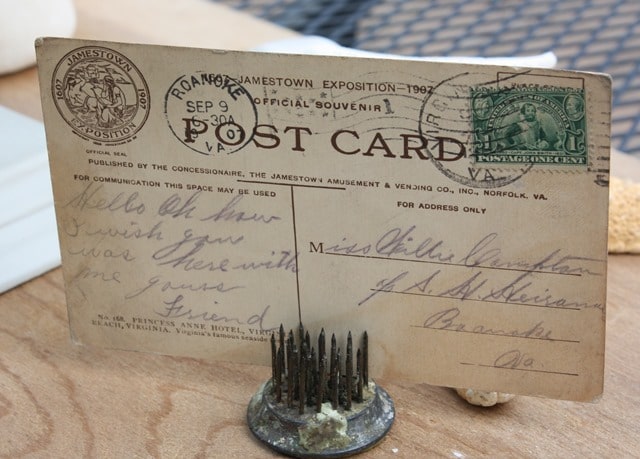 JAMESTOWN
1607
1907
EXPOSITION
OFFICIAL SEAL
JAMESTOWN EXPOSITION-1907
OFFICIAL SOUVENIR
POST CARD
ROANOKE
SEP 9
VA.
1
VA.
POSTAGE ONE CENT
PUBLISHED BY THE CONCESSIONAIRE, THE JAMESTOWN AMUSEMENT & VENDING CO., INC., NORFOLK, VA.
FOR COMMUNICATION THIS SPACE MAY BE USED
FOR ADDRESS ONLY
Hello Oh how
I wish you
was here with
me yours
Friend
No. 168. PRINCESS ANNE HOTEL, VIRG
BEACH, VIRGINIA. Virginia's famous seaside
Miss Willie
S. H.
Roanoke
Va